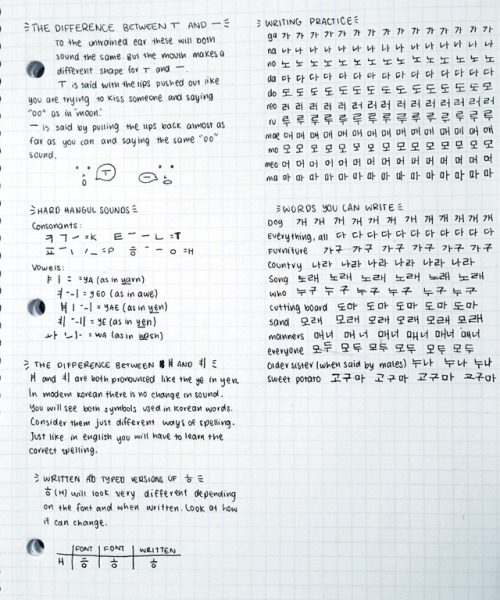 THE DIFFERENCE BETWEEN ㅜ AND ㅡ
To the untrained ear these will both
sound the same. But the mouth makes a
different shape for ㅜ and ㅡ.
ㅜ is said with the lips pushed out like
you are trying to kiss someone and saying
"oo" as in "moon."
ㅡ is said by pulling the lips back almost as
far as you can and saying the same "oo"
sound.
ㅜ
ㅡ
HARD HANGUL SOUNDS
Consonants:
ㅋ ㄱ ㅡ =K ㅌ ㅡ ㅡ ㄴ =T
=P ㅎ =H
Vowels:
ㅑ =YA (as in yarn)
ㅕ =YEO (as in awe)
ㅒ =YAE (as in yen)
ㅖ =YE (as in yen)
ㅘ =WA (as in wash)
THE DIFFERENCE BETWEEN ㅒ AND ㅖ
ㅒ and ㅖ are both pronounced like the ye in yen.
In modern korean there is no change in sound.
You will see both symbols used in Korean words.
Consider them just different ways of spelling.
Just like in english you will have to learn the
correct spelling.
WRITTEN AND TYPED VERSIONS OF ㅎ
ㅎ (H) will look very different depending
on the font and when written. Look at how
it can change.
FONT FONT WRITTEN
H ㅎ ㅎ ㅎ
WRITING PRACTICE
ga 가 가 가 가 가 가 가 가 가 가 가 가
na 나 나 나 나 나 나 나 나 나 나 나 나
no 노 노 노 노 노 노 노 노 노 노 노 노
da 다 다 다 다 다 다 다 다 다 다 다 다
do 도 도 도 도 도 도 도 도 도 도 도 도
reo 러 러 러 러 러 러 러 러 러 러 러 러
ru 루 루 루 루 루 루 루 루 루 루 루 루
mae 매 매 매 매 매 매 매 매 매 매 매
mo 모 모 모 모 모 모 모 모 모 모 모 모
meo 머 머 머 머 머 머 머 머 머 머 머
ma 마 마 마 마 마 마 마 마 마 마 마
WORDS YOU CAN WRITE
Dog 개 개 개 개 개 개 개 개 개 개 개
Everything, all 다 다 다 다 다 다 다 다 다
Furniture 가구 가구 가구 가구 가구
Country 나라 나라 나라 나라 나라
Song 노래 노래 노래 노래 노래 노래
who 누구 누구 누구 누구 누구 누구
cutting board 도마 도마 도마 도마 도마
sand 모래 모래 모래 모래 모래 모래
manners 매너 매너 매너 매너 매너
everyone 모두 모두 모두 모두 모두 모두
Older sister (when said by males) 누나 누나 누나
sweet potato 고구마 고구마 고구마 고구마